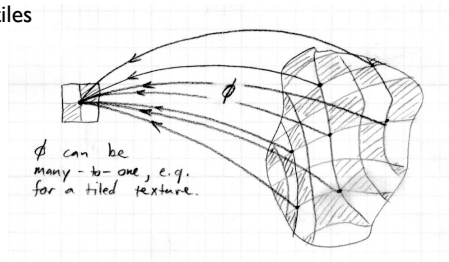 tiles
ϕ
ϕ can be
many-to-one, e.g.
for a tiled texture.